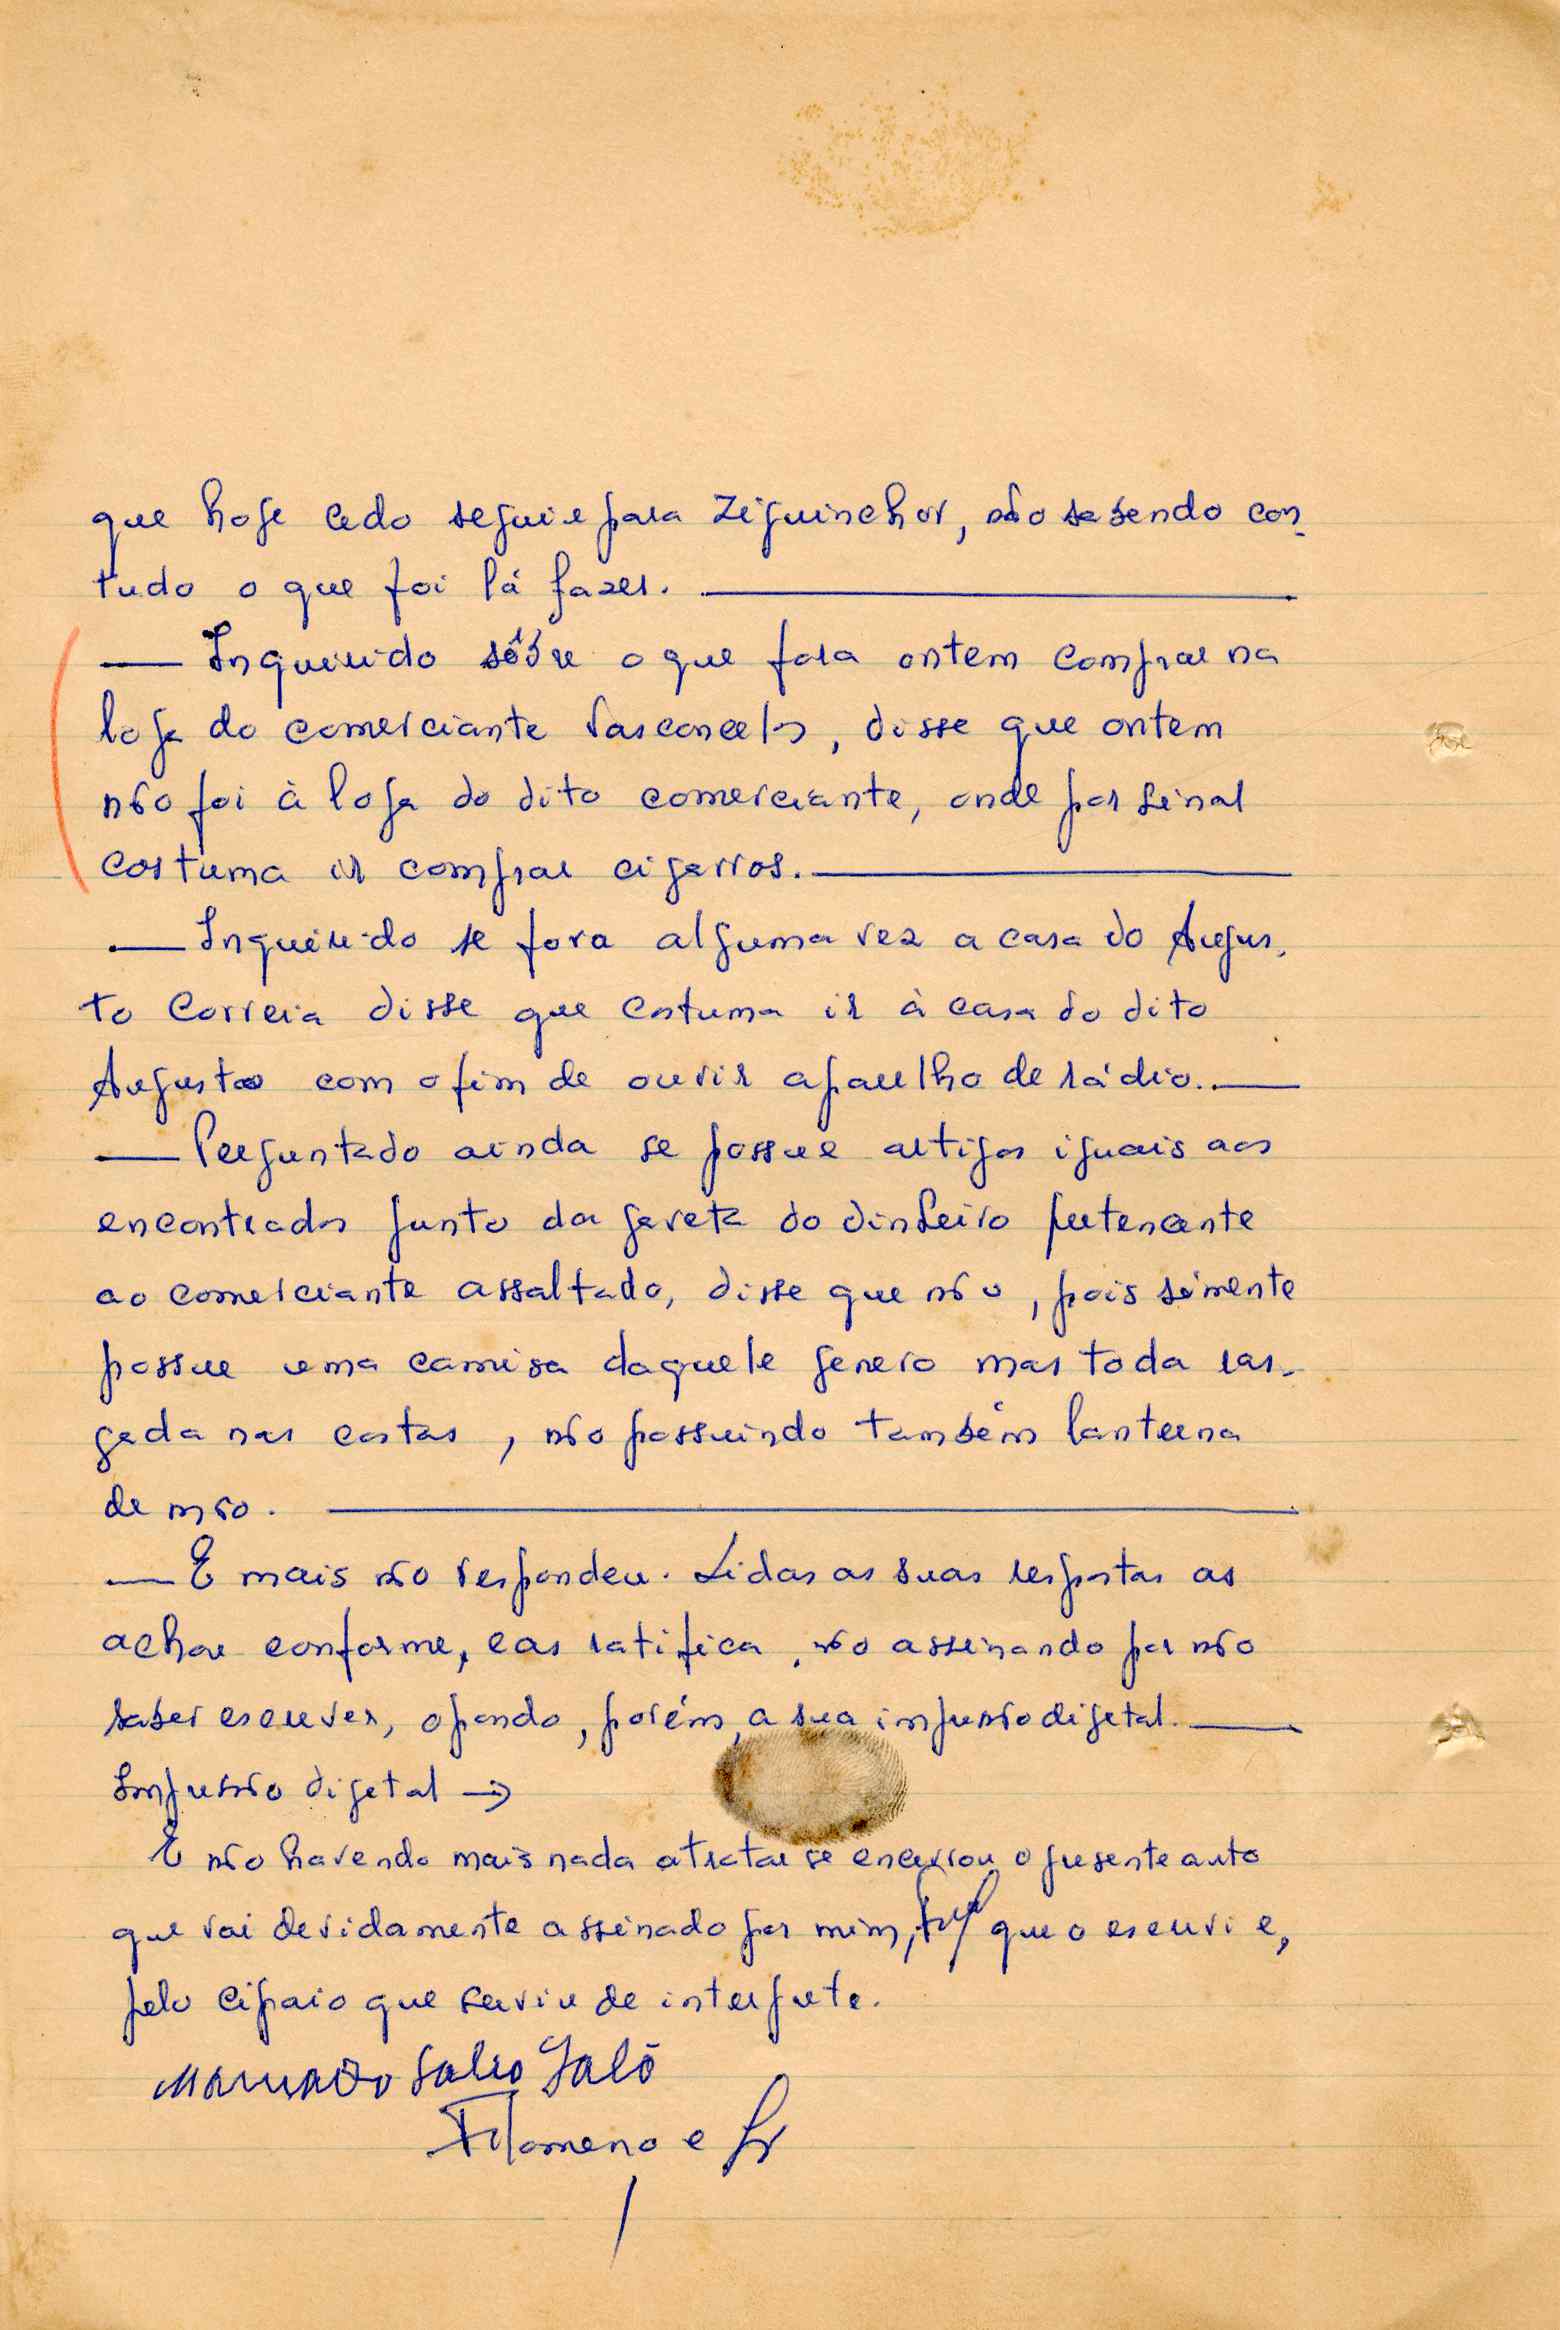 que hoje cedo seguiu para Ziguinchor, não sabendo con-
tudo o que foi lá fazer.
— Inquirido sôbre o que fora ontem comprar na
loja do comerciante Vasconcelos, disse que ontem
não foi à loja do dito comerciante, onde por sinal
costuma ir comprar cigarros.
— Inquirido se fora alguma vez a casa do Augus-
to Correia disse que costuma ir à casa do dito
Augusto com o fim de ouvir aparelho de rádio.
— Perguntado ainda se possue artigos iguais aos
encontrados junto da gaveta do dinheiro pertencente
ao comerciante assaltado, disse que não, pois sòmente
possue uma camisa daquele genero mas toda ras-
gada nas costas, não possuindo também lanterna
de mão.
— E mais não respondeu. Lidas as suas respostas as
achou conforme, e as ratifica, não assinando por não
saber escrever, opondo, porém, a sua impressão digetal.
Impressão digetal →
E não havendo mais nada a tratar se encerrou o presente auto
que vai devidamente assinado por mim, que o escrevi e,
pelo cipaio que serviu de interprete.
Galo
Filomeno e